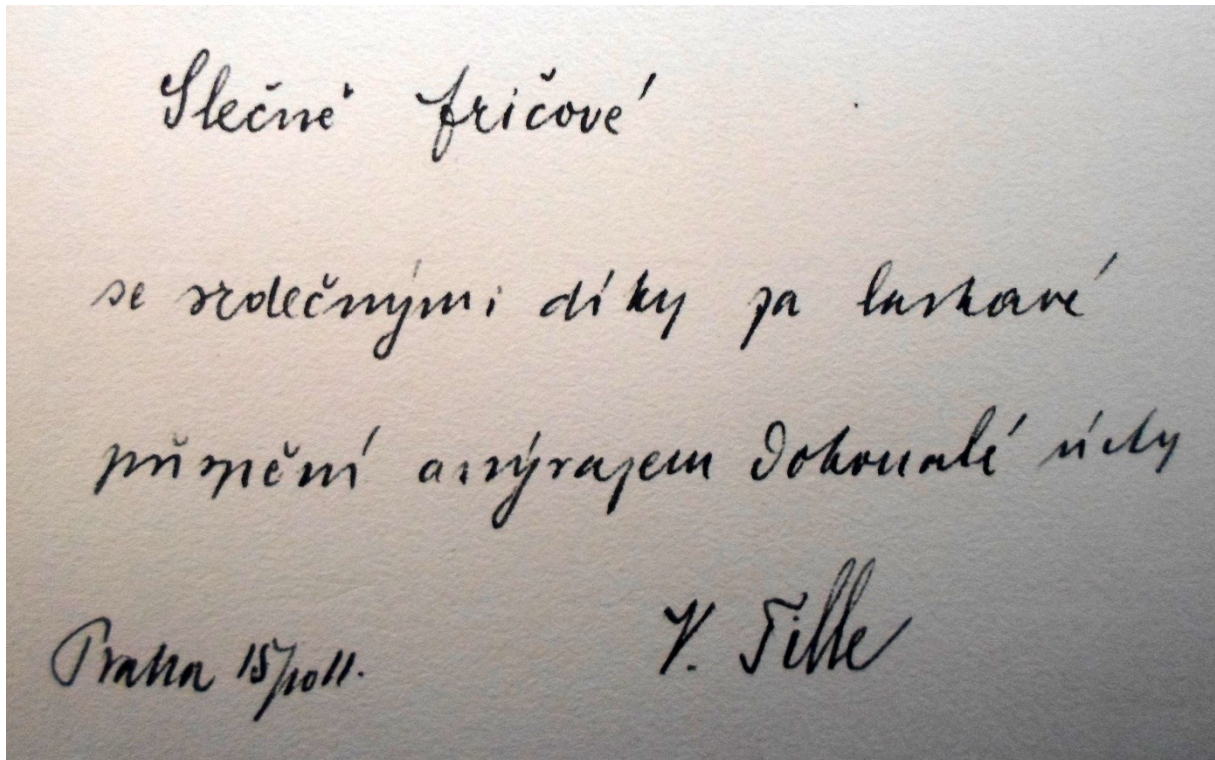 Slečně Fričové
se srdečnými díky za laskavé
přispění a s výrazem dokonalé úcty
V. Tille
Praha